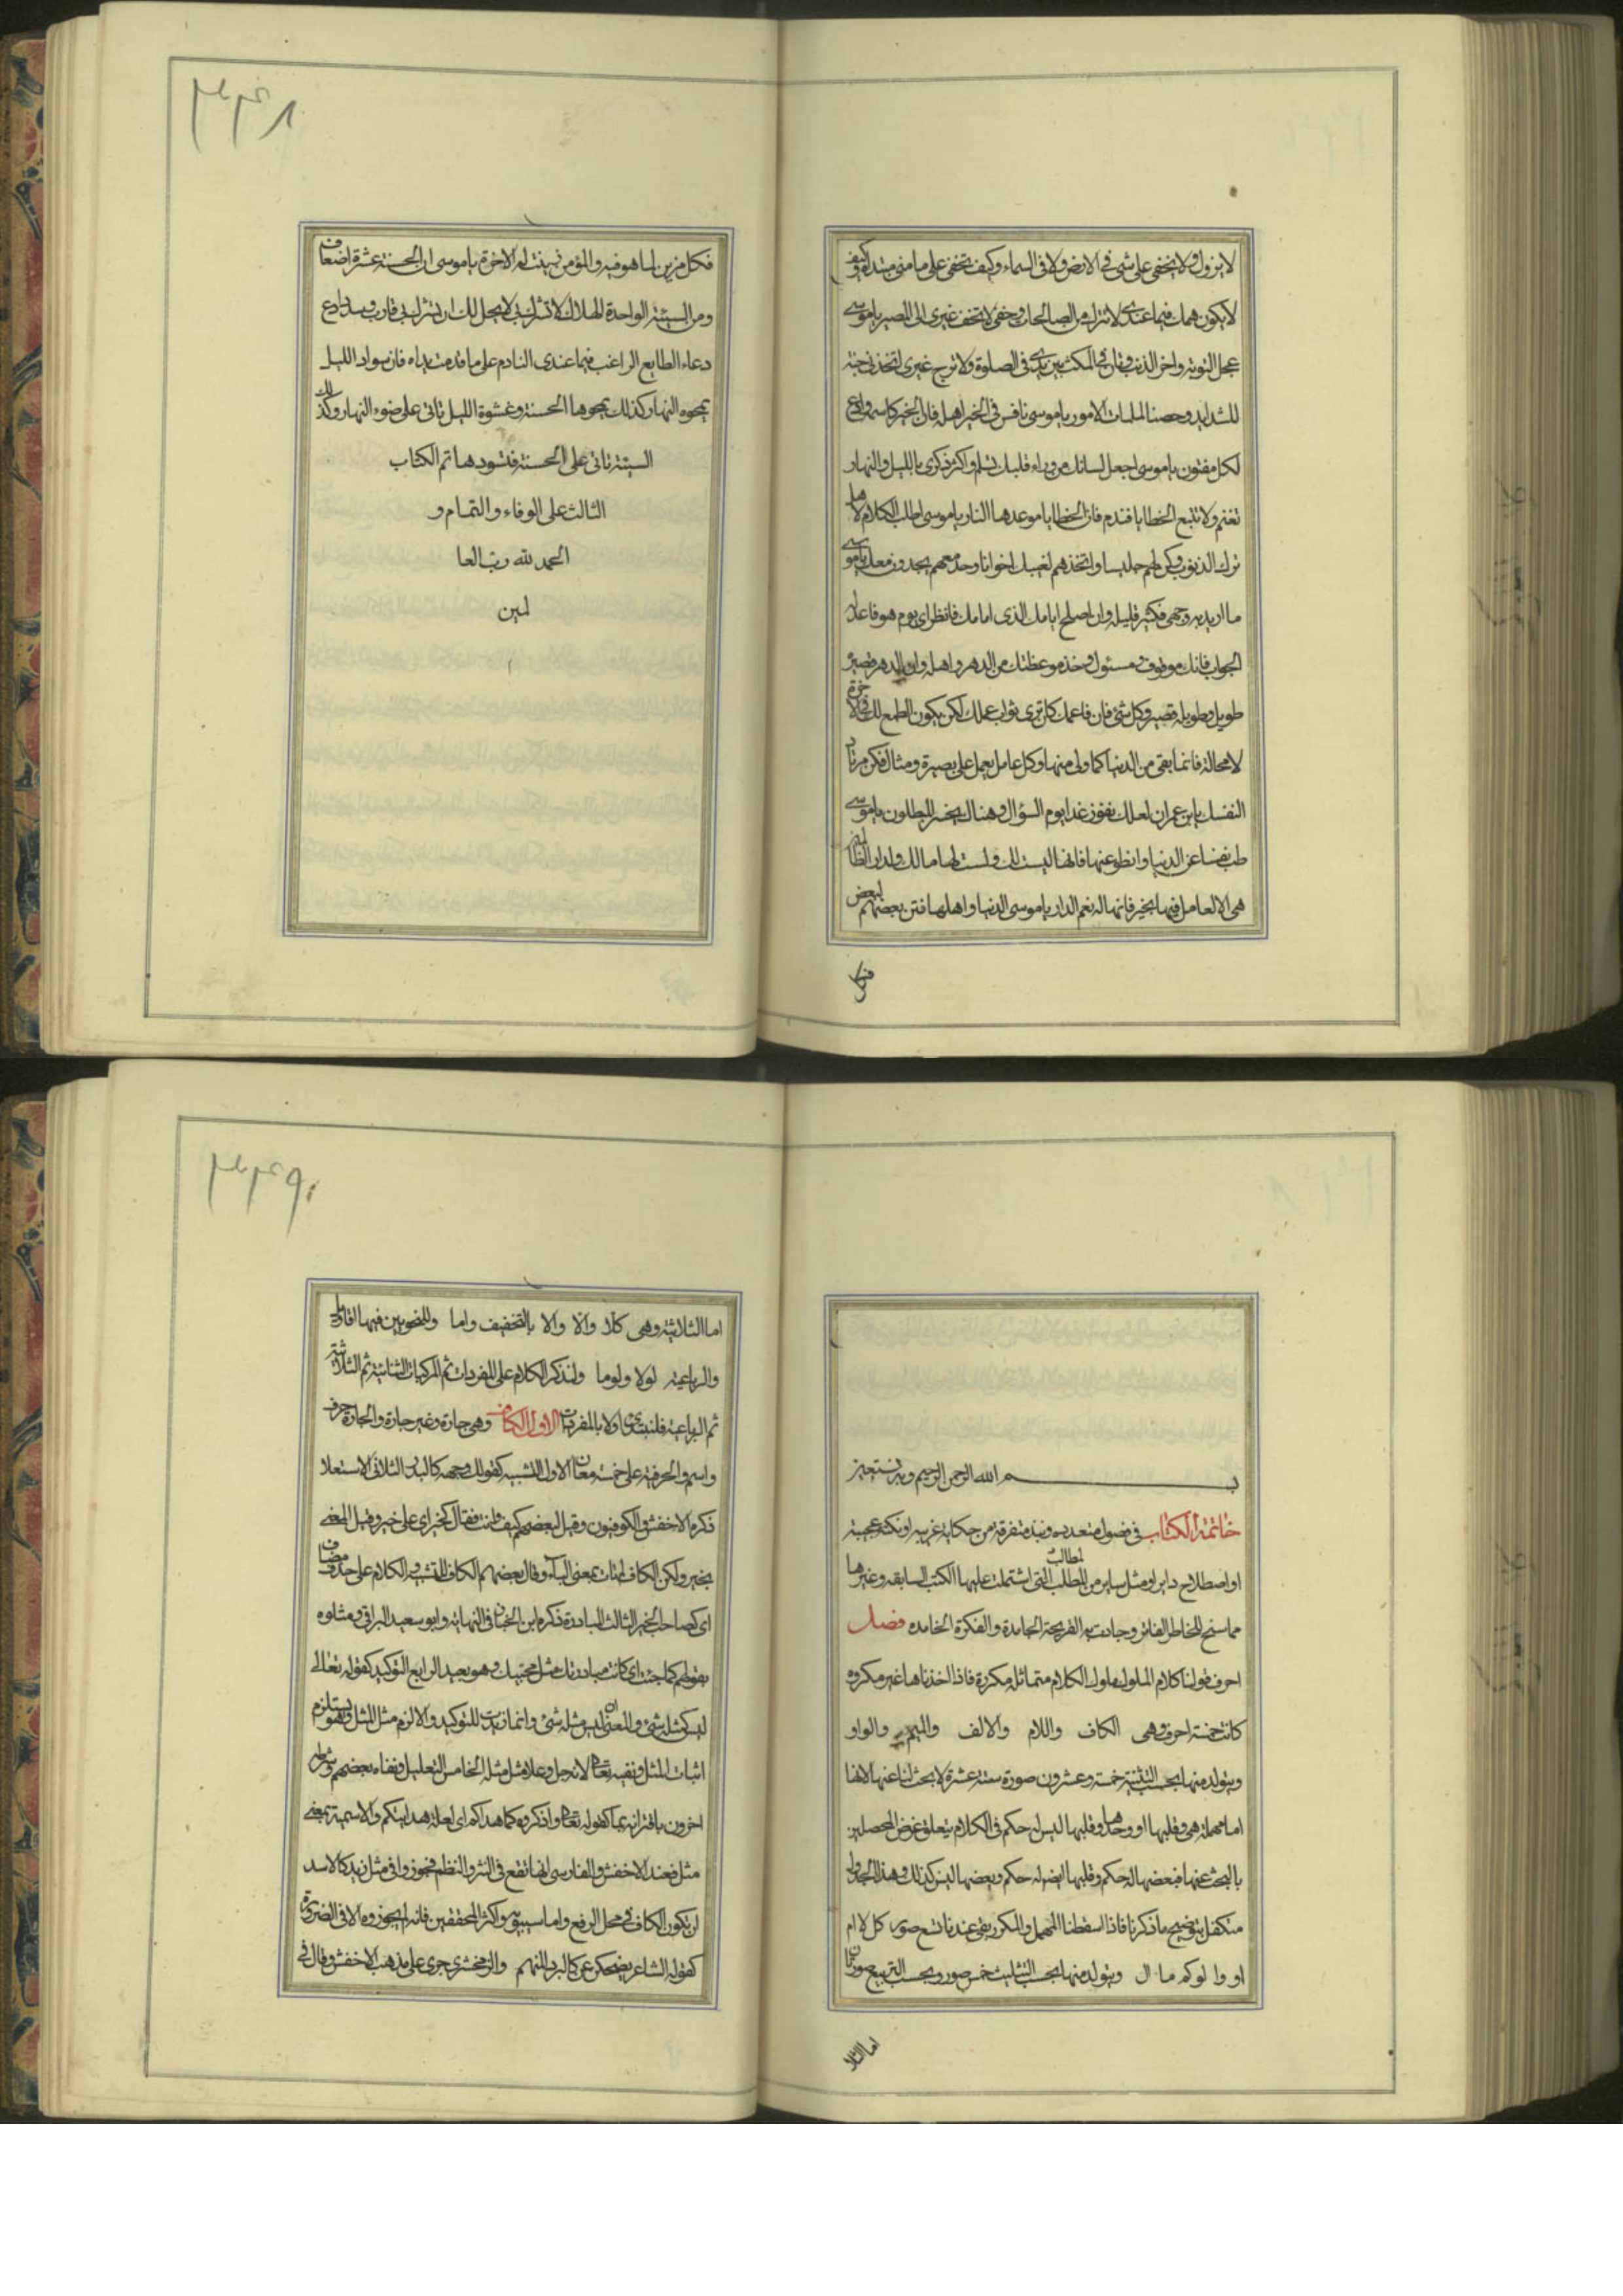 لا يزول ولا يخفى على شئ فى الارض ولا فى السماء وكيف تخفى على ما منى مبتداه وكيف
لا يكون همك فيما عندى لانترك من الصالحات وخفنى لا تخف غيرى الى المصير يا موسى
عجل التوبة واخر الذنب وتان فى المكث بين يدى فى الصلوة ولا ترج غيرى اتخذنى جنة
للشدايد وحصنا لملمات الامور يا موسى نافس فى الخير اهله فان الخير كاسمه ودع
لكل مفتون يا موسى اجعل لسانك من وراء قلبك تسلم واكثر ذكرى بالليل والنهار
تغنم ولا تتبع الخطايا فتندم فان الخطايا موعدها النار يا موسى اطب الكلام لا
ترك الذنوب وكن لهم جليسا واتخذهم لغيبك اخوانا وجد معهم يجدون معك يا موسى
ما اريد به وجهى فكثير قليله وان اصلح ايامك الذى امامك فانظر اى يوم هو فاعد له
الجواب فانك موقوف ومسئول وخذ موعظتك من الدهر واهله وان الدهر قصيره
طويل وطويله قصير وكل شئ فان فاعمل كان ترى ثواب عملك لكن يكون اطمع لك فى الاخرة
لا محالة فانما بقى من الدنيا كما ولى منها وكل عامل يعمل على بصيرة ومثال فكن مرتادا
لنفسك يا بن عمران لعلك تفوز غدا يوم السؤال وهنالك يخسر المبطلون يا موسى
طب نفسا عن الدنيا وانطو عنها فانها ليست لك ولست لها مالك ولدار الظالمين
هى الا لعامل فيها بخير فانها له نعم الدار يا موسى الدنيا واهلها فتن بعضهم لبعض
فكل
٣٣٤٨
فكل مزين لما هو فيه والمؤمن زينت له الاخرة يا موسى ان الحسنة عشرة اضعاف
ومن السيئة الواحدة الهلاك لا تشرك بى لا يحل لك ان تشرك بى قارب وسدد ادع
دعاء الطايع الراغب فيما عندى النادم على ما قدمت يداه فان سواد الليل
يمحوه النهار وكذلك يمحوها الحسنة وغشوة الليل تاتى على ضوء النهار وكذلك
السيئة تاتى على الحسنة فتسودها تم الكتاب
الثالث على الوفاء والتمام و
الحمد لله رب العا
لمين
بسم الله الرحمن الرحيم وبه نستعين
خاتمة الكتاب فى فصول متعدده ونبذه متفرقة من حكاية غريبه او نكتة عجيبة
او اصطلاح داير او مثل ساير من المطالب التى اشتملت عليها الكتب السابقه وغيرها
مما سنح للخاطر الفاتر وجادت به القريحة الجامدة والفكرة الخامده فصل
احرف قولنا كلام الملوك ملوك الكلام متماثله مكررة فاذا اخذناها غير مكرره
كانت خمسة احرف وهى الكاف واللام والالف والميم والواو
ويتولد منها بحسب التثنية خمسة وعشرون صورة ستة عشرة لا بحث لنا عنها لانها
اما مهملة هى وقلبها او وحدها وقلبها ليس له حكم فى الكلام يتعلق غرض المحصلين
بالبحث عنها فبعضها له حكم وقلبها ايضا له حكم وبعضها ليس كذلك وهذا الجدول
متكفل بتوضيح ما ذكرنا فاذا اسقطنا المهمل والمكرر بقى عندنا تسع صور كل لا ام
او وا لو كم ما ال ويتولد منها بحسب التثليث خمس صور وبحسب التربيع صورتان
اما الثلا
٣٣٤٩
اما الثلاثية وهى كلا والا والا بالتخفيف واما وللنحويين فيها اقاويل
والرباعية لولا ولوما ولنذكر الكلام على المفردات ثم المركبات الثنائية ثم الثلاثية
ثم الرباعية فلنبتدئ اولا بالمفردات الاول الكاف وهى جارة وغير جارة والجارة حرف
واسم والحرفية على خمسة معان الاول التشبيه كقولك وجهه كالبدر الثانى الاستعلا
ذكره الاخفش والكوفيون وقيل لبعضهم كيف انت فقال كخير اى على خير وقيل المعنى
بخير ولكن الكاف اتت بمعنى الباء وقال بعضهم الكاف للتشبيه والكلام على حذف مضاف
اى كصاحب الخير الثالث المبادرة ذكره ابن الخباز فى النهاية وابو سعيد السيرافى ومثلوه
بقولهم كما جئت اى كانت مبادرتك مثل مجيئك وهو بعيد الرابع التوكيد كقوله تعالى
ليس كمثله شئ والمعنى ان ليس مثله شئ وانما زيدت للتوكيد والا لزم مثل المثل وهو يستلزم
اثبات المثل ونفيه تعالى لانه جل وعلا مثل مثله الخامس التعليل ونفاه بعضهم وشرط
اخرون باقترانه بما كقوله تعالى واذكروه كما هداكم اى لعلة هدايتكم والاسمية بمعنى
مثل فعند الاخفش والفارسى انها تقع فى النثر والنظم فجوزوا فى مثل زيد كالاسد
ان تكون الكاف فى محل الرفع واما سيبويه واكثر المحققين فانه لم يجوزوه الا فى الضرورة
كقوله الشاعر يضحكن عن كالبرد المنهم والزمخشرى جرى على مذهب الاخفش وقال فى